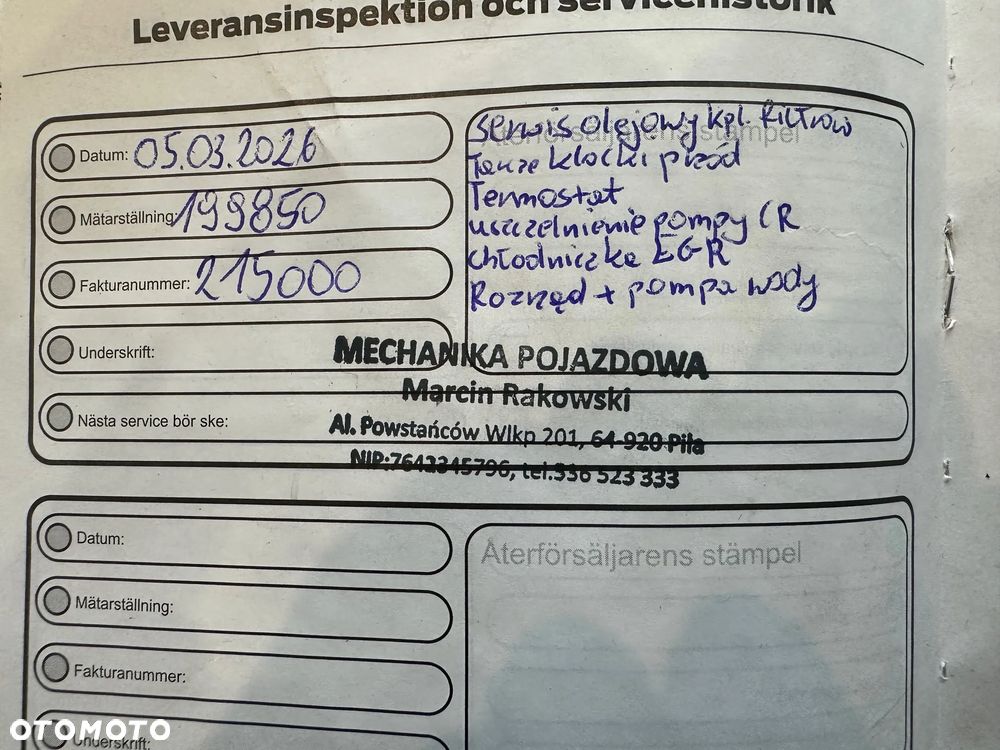 Leveransinspektion och servicehistorik
Datum: 05.03.2026
Mätarställning: 199850
Fakturanummer: 215000
Underskrift:
Nästa service bör ske:
Återförsäljarens stämpel
serwis olejowy kpl. filtrów
klocki przód
Termostat
uszczelnienie pompy CR
chłodniczka EGR
Rozrząd + pompa wody
MECHANIKA POJAZDOWA
Marcin Rakowski
Al. Powstańców Wlkp 201, 64-920 Piła
NIP:7642345796, tel.536 523 333
Datum:
Mätarställning:
Fakturanummer:
Underskrift:
Återförsäljarens stämpel
OTOMOTO